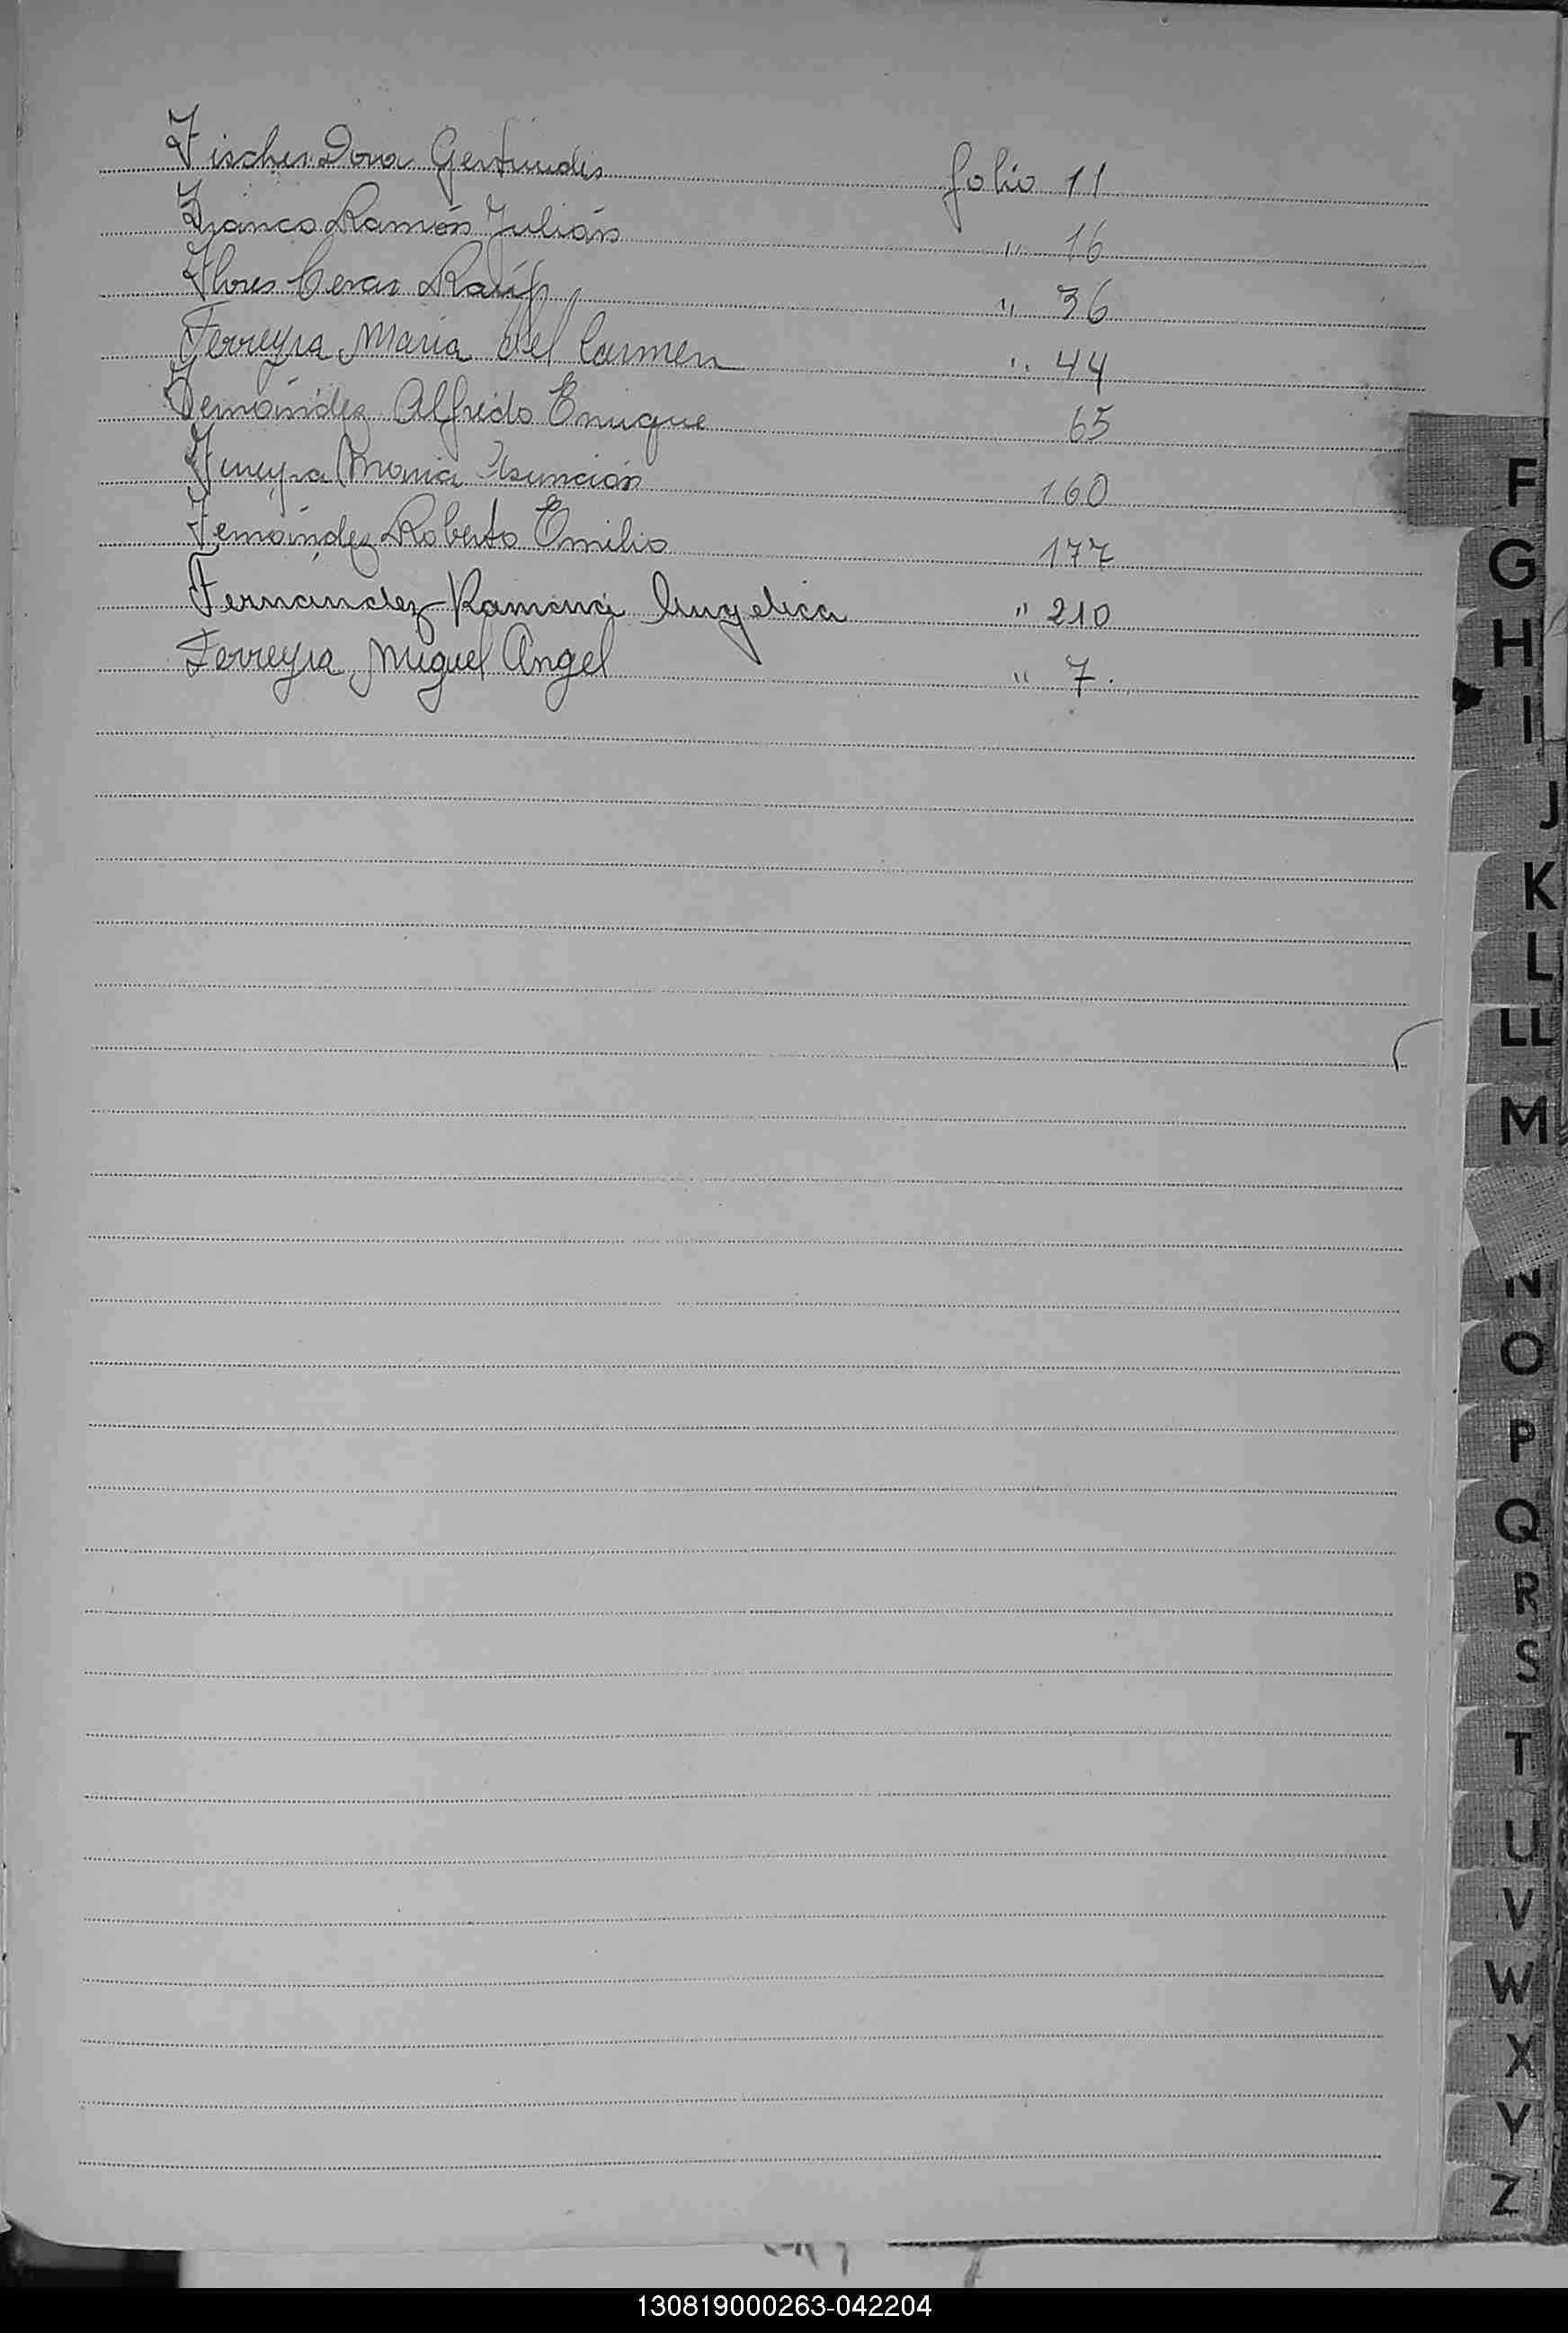 Fischer Dora Gertrudis folio 11
Franco Ramón Julián " 16
Flores Cesar Raúl " 36
Ferreyra Maria del Carmen " 44
Fernández Alfredo Enrique 65
Ferreyra Maria Asunción 160
Fernández Roberto Emilio 177
Fernandez Ramona Angelica " 210
Ferreyra Miguel Angel " 7.
F
G
H
I
J
K
L
LL
M
N
O
P
Q
R
S
T
U
V
W
X
Y
Z
130819000263-042204